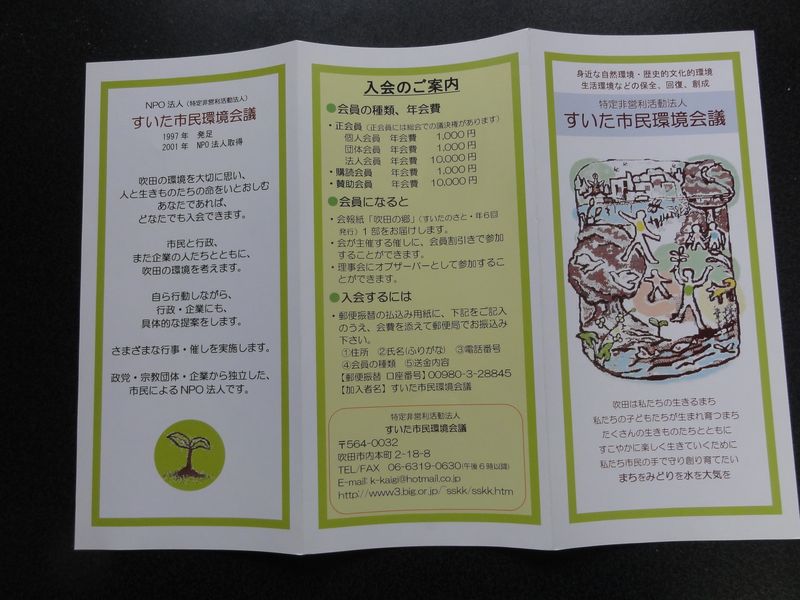 NPO 法人(特定非営利活動法人)
すいた市民環境会議
1997 年 発足
2001 年 NPO 法人取得
吹田の環境を大切に思い、
人と生きものたちの命をいとおしむ
あなたであれば、
どなたでも入会できます。
市民と行政、
また企業の人たちとともに、
吹田の環境を考えます。
自ら行動しながら、
行政・企業にも、
具体的な提案をします。
さまざまな行事・催しを実施します。
政党・宗教団体・企業から独立した、
市民による NPO 法人です。
入会のご案内
●会員の種類、年会費
・正会員(正会員には総会での議決権があります)
個人会員 年会費 1,000 円
団体会員 年会費 1,000 円
法人会員 年会費 10,000 円
・購読会員 年会費 1,000 円
・賛助会員 年会費 10,000 円
●会員になると
・会報紙「吹田の郷」(すいたのさと・年6回
発行) 1 部をお届けします。
・会が主催する催しに、会員割引きで参加
することができます。
・理事会にオブザーバーとして参加するこ
とができます。
●入会するには
・郵便振替の払込み用紙に、下記をご記入
のうえ、会費を添えて郵便局でお振込み
下さい。
①住所 ②氏名(ふりがな) ③電話番号
④会員の種類 ⑤送金内容
【郵便振替 口座番号】00980-3-28845
【加入者名】すいた市民環境会議
特定非営利活動法人
すいた市民環境会議
〒564-0032
吹田市内本町 2-18-8
TEL/FAX 06-6319-0630(午後6時以降)
E-mail: k-kaigi@hotmail.co.jp
http://www3.big.or.jp/~sskk/sskk.htm
身近な自然環境・歴史的文化的環境
生活環境などの保全、回復、創成
特定非営利活動法人
すいた市民環境会議
吹田は私たちの生きるまち
私たちの子どもたちが生まれ育つまち
たくさんの生きものたちとともに
すこやかに楽しく生きていくために
私たち市民の手で守り創り育てたい
まちをみどりを水を大気を